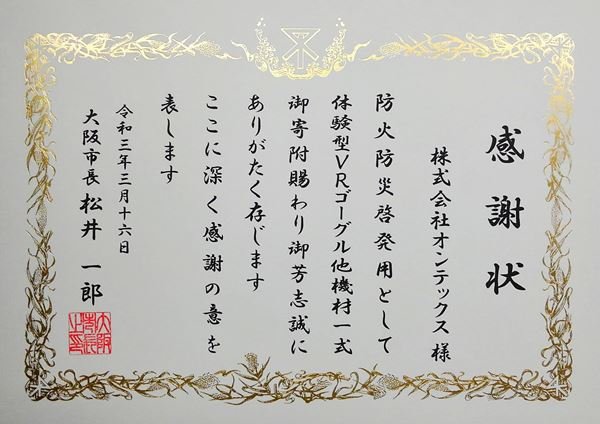 感謝状
株式会社オンテックス様
防火防災啓発用として
体験型VRゴーグル他機材一式
御寄附賜わり御芳志誠に
ありがたく存じます
ここに深く感謝の意を
表します
令和三年三月十六日
大阪市長 松井一郎